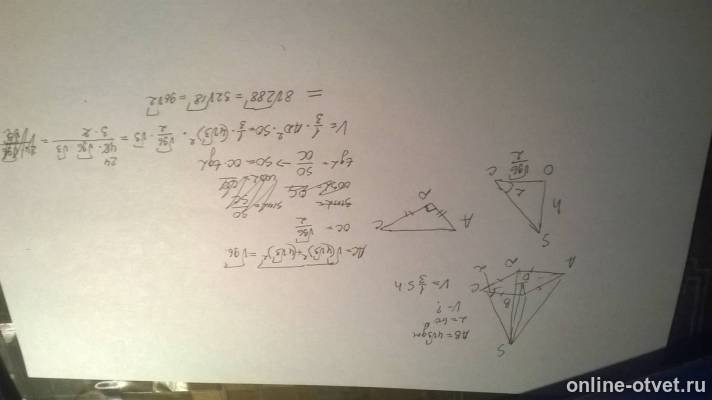 S
A
B
C
D
O
AB = 4√3 дм
V - ?
V = 1/3 S h
S
h
O
C
√96/2
A
D
C
AC = √(4√3)² + (4√3)² = √96
OC = √96/2
tgα = SO/OC => SO = OC · tgα
V = 1/3 · AD² · SO = 1/3 · (4√3)² · √96/2 · √3 = 48 · √96 · √3 / 3 · 2 =
= 8√288 = 32√18 = 96√2
online-otvet.ru